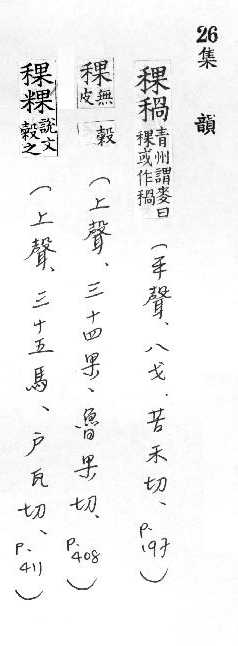 26 集韻
稞 青州謂麥曰稞或作 (平聲、八戈、苦禾切、P.197)
稞 無皮 穀 (上聲、三十四果、魯果切、P.408)
稞粿 說文穀之 (上聲、三十五馬、戶瓦切、P.411)